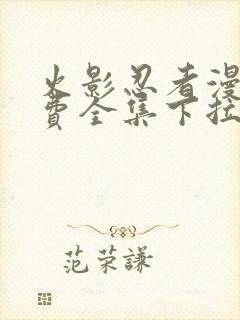 火影忍者漫
费全集下拉
范荣謙